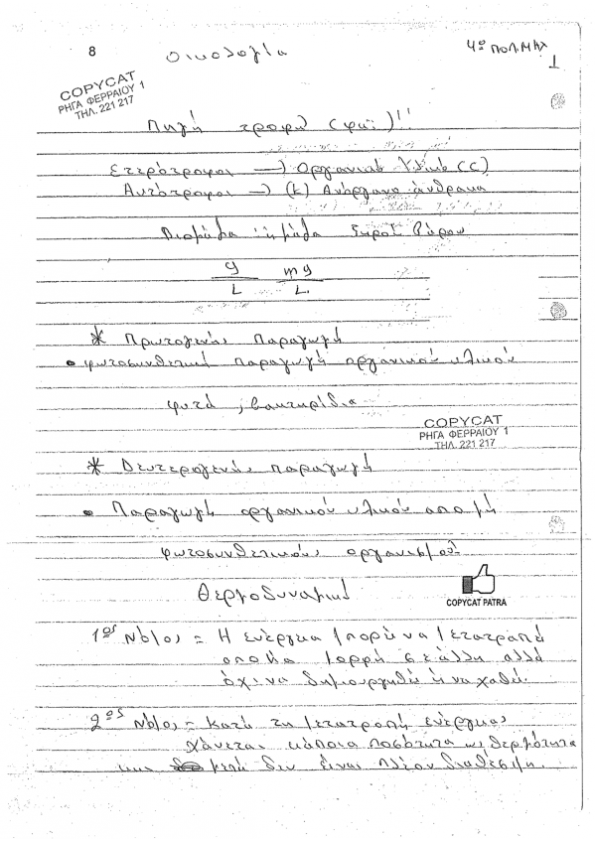 8
Οικολογία
4ο ΠΟΛ.ΜΑΧ
1
COPYCAT
ΡΗΓΑ ΦΕΡΡΑΙΟΥ 1
ΤΗΛ. 221 217
Πηγή τροφή
Ετερότροφοι → Οργανικό Υλικό (C)
Αυτότροφοι → Ανόργανο άνθρακα
Βιομάζα
g mg
L L
* Πρωτογενής Παραγωγή
• φωτοσυνθετική παραγωγή οργανικού υλικού
φυτά, βακτηρίδια
COPYCAT
ΡΗΓΑ ΦΕΡΡΑΙΟΥ 1
ΤΗΛ. 221 217
* Δευτερογενής παραγωγή
• Παραγωγή οργανικού υλικού από μη
φωτοσυνθετικούς οργανισμούς
Θερμοδυναμική
COPYCAT PATRA
1ος Νόμος = Η ενέργεια μπορεί να μετατραπεί
από μία μορφή σε άλλη αλλά
όχι να δημιουργηθεί ή να χαθεί.
2ος Νόμος = Κατά τη μετατροπή ενέργειας
χάνεται κάποια ποσότητα ως θερμότητα
και αυτή δεν είναι πλέον διαθέσιμη.